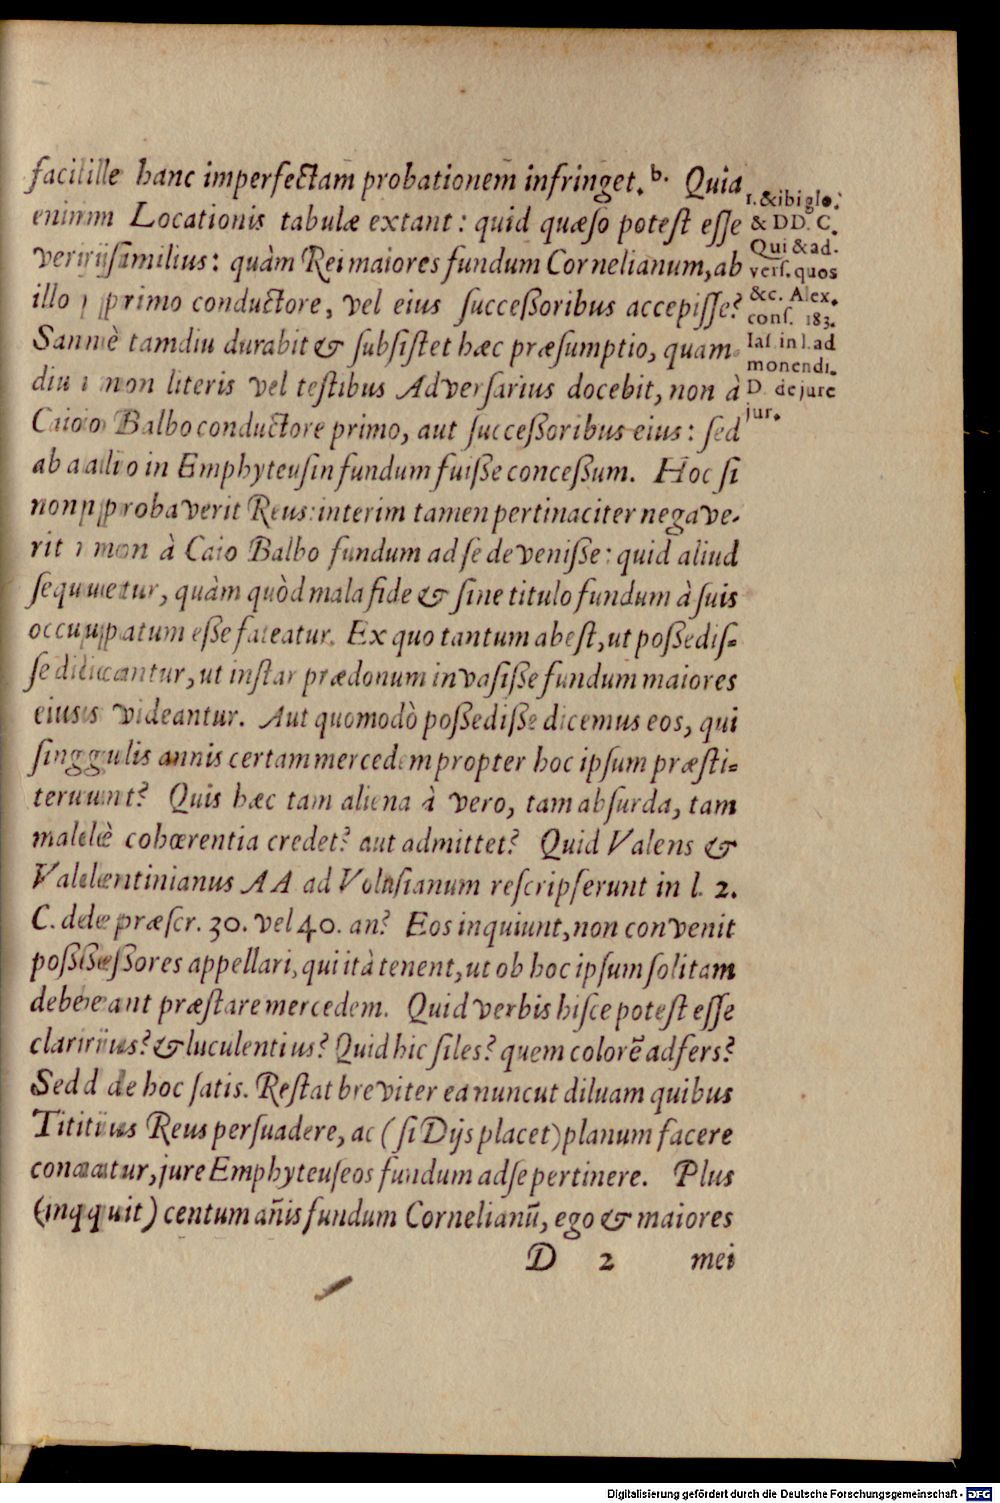 facilè hanc imperfectam̄ probationem̄ infringet. b. Quia
enim Locationis tabulæ extant: quid quæso potest esse
verisimilius: quàm Rei maiores fundum Cornelianum, ab
illo primo conductore, vel eius successoribus accepisse?
Sanè tamdiu durabit & subsistet hæc præsumptio, quam
diu non literis vel testibus Adversarius docebit, non à
Caio Balbo conductore primo, aut successoribus eius: sed
ab alio in Emphyteusin fundum fuisse concessum. Hoc si
non probaverit Reus: interim tamen pertinaciter negave-
rit non à Caio Balbo fundum ad se devenisse: quid aliud
sequetur, quàm quòd mala fide & sine titulo fundum à suis
occupatum esse fateatur. Ex quo tantum abest, ut possedis-
se dicantur, ut instar prædonum invasisse fundum maiores
eius videantur. Aut quomodò possedisse dicemus eos, qui
singulis annis certam mercedem propter hoc ipsum præsti-
terunt? Quis hæc tam aliena à vero, tam absurda, tam
malè cohœrentia credet? aut admittet? Quid Valens &
Valentinianus AA ad Volusianum rescripserunt in l. 2.
C. de præscr. 30. vel 40. an? Eos inquiunt, non convenit
possessores appellari, qui ità tenent, ut ob hoc ipsum solitam
debeant præstare mercedem. Quid verbis hisce potest esse
clarius? & luculentius? Quid hic siles? quem colorē adfers?
Sed de hoc satis. Restat breviter ea nunc ut diluam quibus
Titius Reus persuadere, ac (si Dijs placet) planum facere
conatur, jure Emphyteuseos fundum ad se pertinere. Plus
(inquit) centum añis fundum Cornelianū, ego & maiores
D 2 mei
1. & ibi glo.
& DD. C.
Qui & ad-
vers. quos
&c. Alex.
cons. 183.
Ias. in l. ad
monendi.
D. de jure
jur.
Digitalisierung gefördert durch die Deutsche Forschungsgemeinschaft - DFG